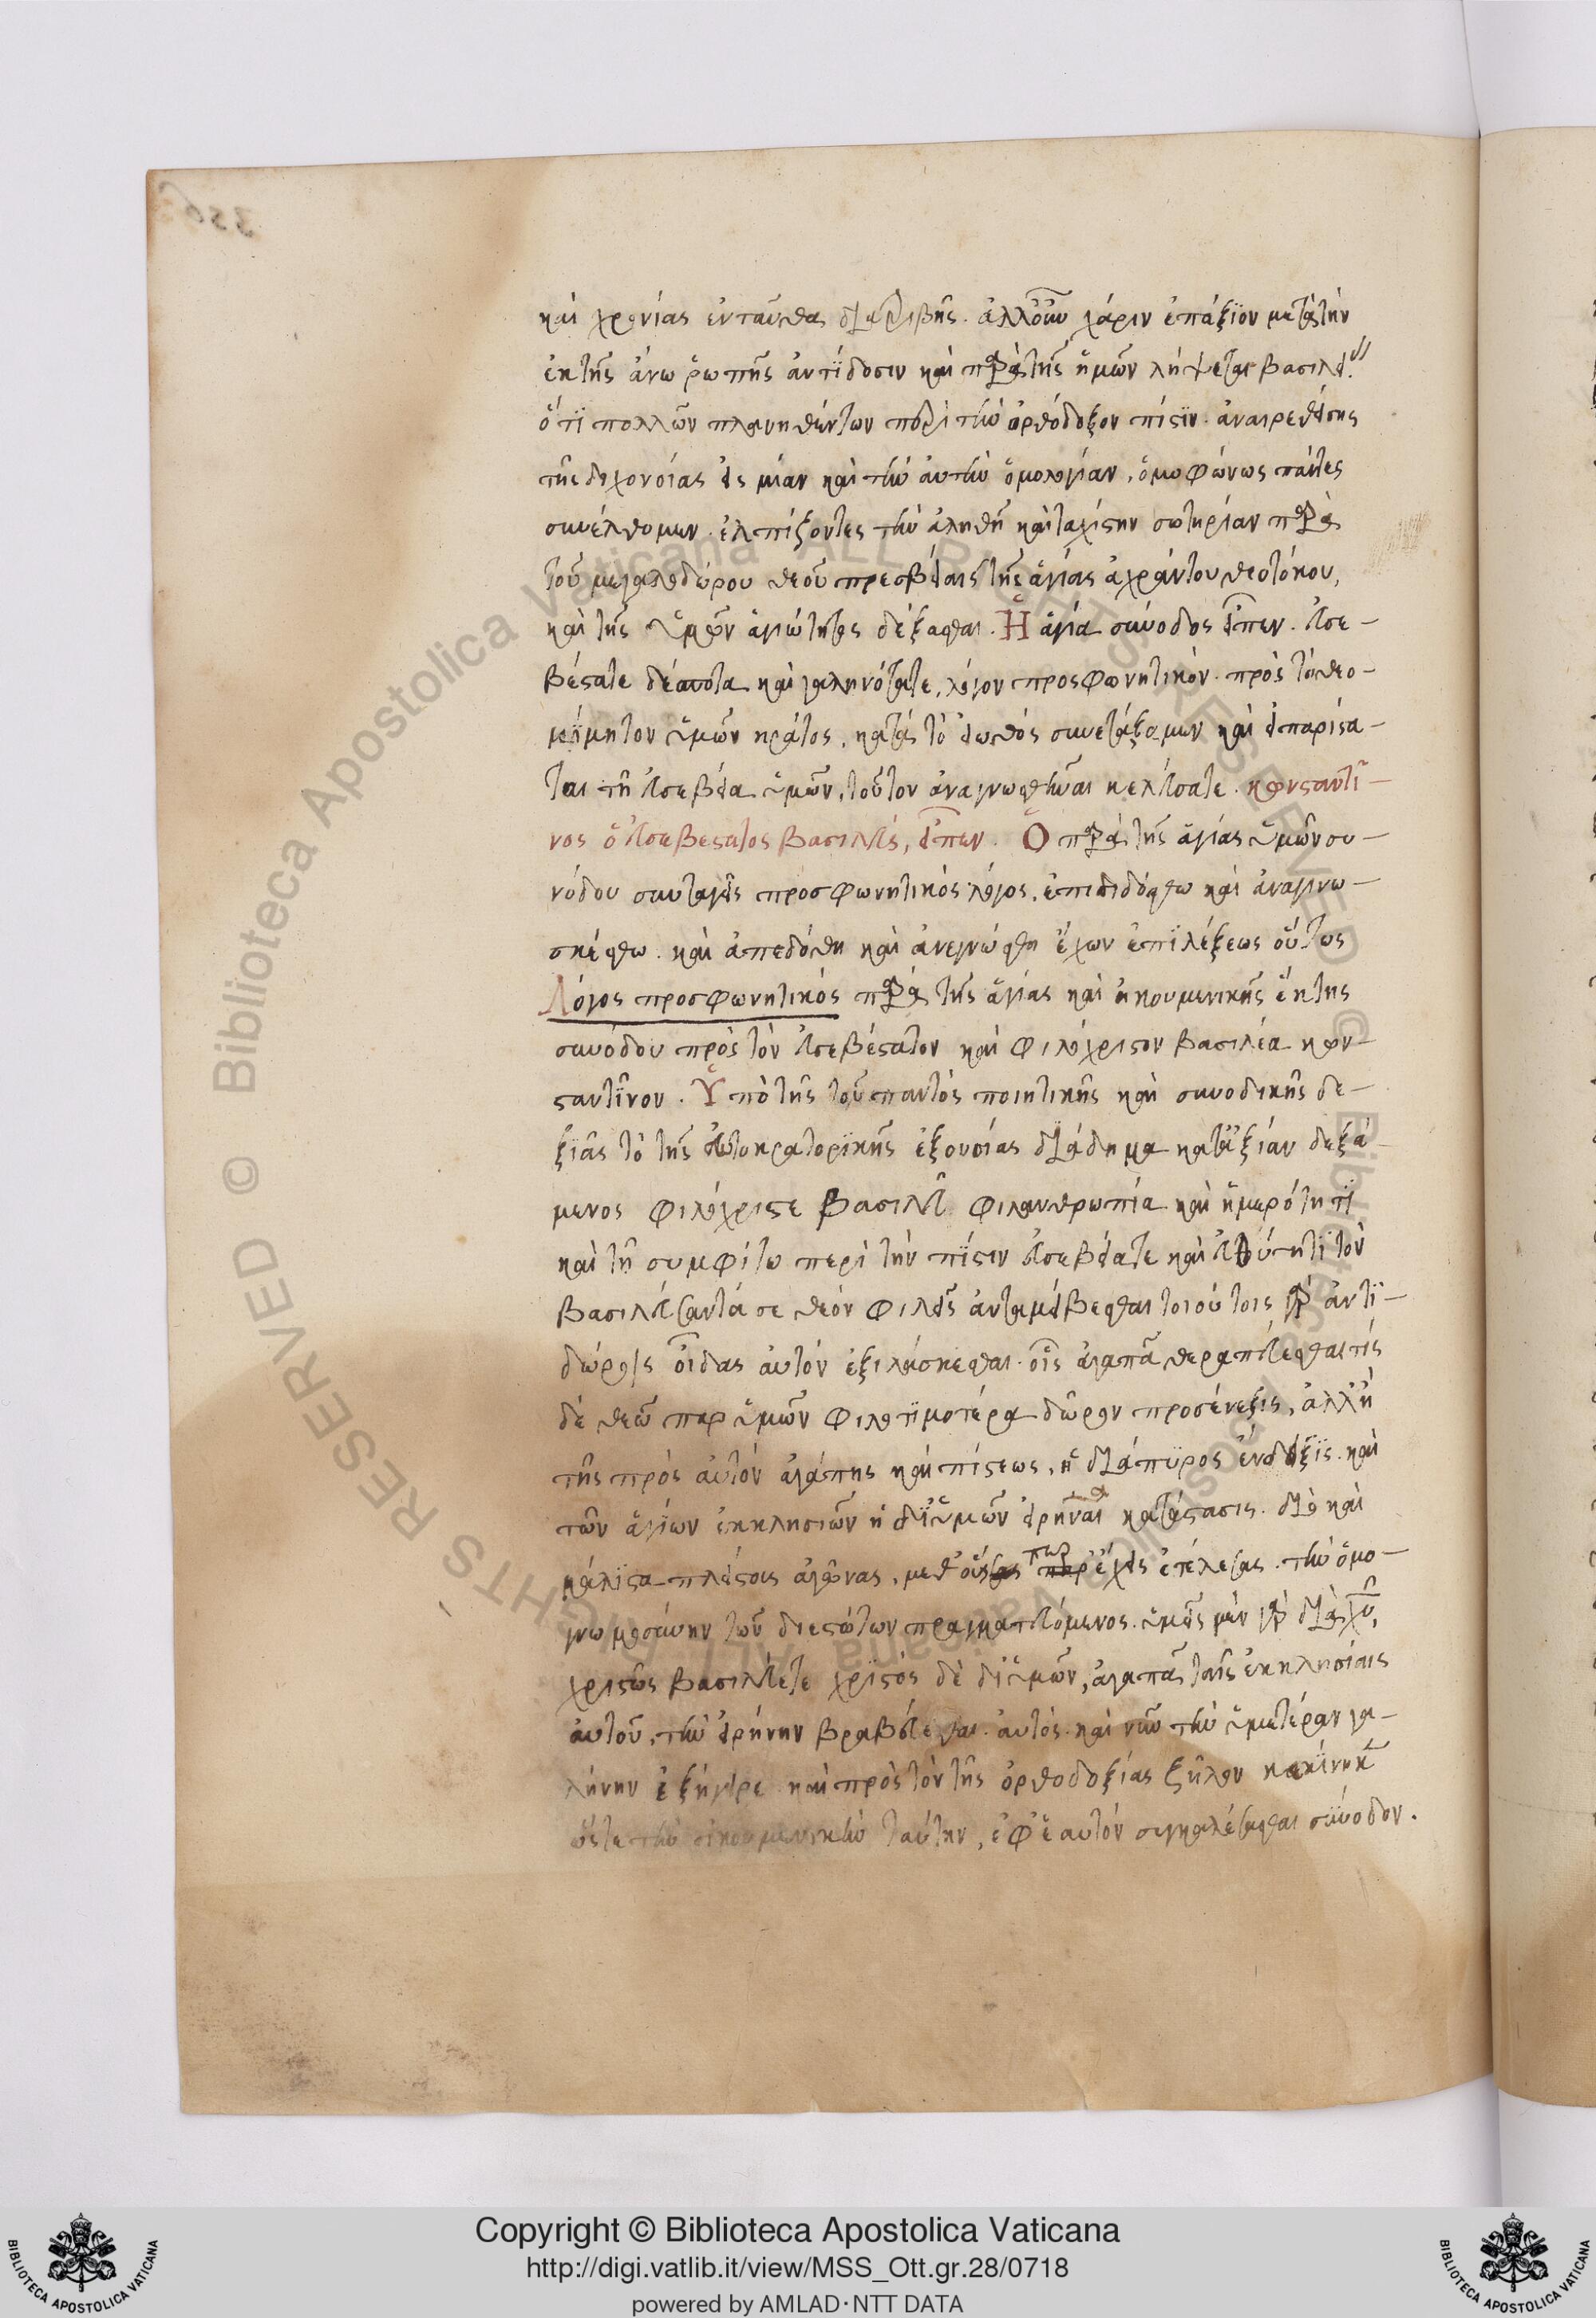 καὶ χρονίας ἐνταῦθα διατριβῆς. ἀλλ' οὖν χάριν ἐπάξϊον μετὰ τὴν
ἐκ τῆς ἄνω ῥωπῆς ἀντίδοσιν καὶ παρὰ τῆς ἡμῶν λήψεται βασιλεί
ὅτϊ πολλῶν πλανηθέντων περὶ τὴν ὀρθόδοξον πίστϊν. ἀναιρεθείσης
τῆς διχονοίας εἰς μίαν καὶ τὴν ἀυτὴν ὁμολογίαν, ὁμοφώνως πάντες
συνέλθομεν. ἐλπίζοντες τὴν ἀληθῆ καὶ ταχίστην σωτηρίαν παρὰ
τοῦ μεγαλοδώρου θεοῦ πρεσβείαις τῆς ἁγίας ἀχράντου θεοτόκου,
καὶ τῆς ὑμῶν ἁγιώτητος δέξασθαι. Ἡ ἁγία σύνοδος εἶπεν. ἐυσε-
βέστατε δέσποτα καὶ γαληνότατε, λόγον προσφωνητικὸν πρὸς τὸ θεο-
μΐμητον ὑμῶν κράτος, κατὰ τὸ εἰωθὸς συνετάξαμεν καὶ εἰ παρίστα-
ται τῇ ἐυσεβεία ὑμῶν, τοῦτον ἀναγνωσθῆναι κελέυσατε. κωνσταντῖ-
νος ὁ ἐυσεβεστατος βασιλεὺς, εἶπεν. Ὁ παρὰ τῆς ἁγίας ὑμῶν συ-
νόδου συνταγεὶς προσφωνητικὸς λόγος, ἐπιδιδόσθω καὶ ἀναγινω-
σκέσθω. καὶ ἀπεδόθη καὶ ἀνεγνώσθη ἔχων ἐπϊλέξεως οὕτως
Λόγος προσφωνητικὸς παρὰ τῆς ἁγίας καὶ οἰκουμενικῆς ἕκτης
συνόδου πρὸς τὸν ἐυσεβέστατον καὶ φιλόχριστον βασιλέα κων-
σταντῖνον. Ὑπὸ τῆς τοῦ παντὸς ποιητικῆς καὶ συνοδικῆς δε-
ξιᾶς τὸ τῆς ἀυτοκρατορϊκῆς ἐξουσίας διάδημα κατ' ἀξίαν δεξά-
μενος φιλόχριστε βασιλεῦ φιλανθρωπία καὶ ἡμερότητϊ
καὶ τῇ συμφίτω περὶ τὴν πΐστιν ἐυσεβεία τε καὶ ἐυθύτητϊ τὸν
βασιλέυσαντά σε θεόν φιλεῖς ἀνταμείβεσθαι τοιούτοις γὰρ ἀντϊ-
δώροις οἶδας ἀυτόν ἐξιλάσκεσθαι. οἷς ἀγαπᾶ θεραπέυεσθαι τίς
δὲ θεῶ παρ ὑμῶν φιλοτϊμοτέρα δώρων προσένεξις, ἀλλ' ἢ
τῆς πρὸς ἀυτόν ἀγάπης καὶ πίστεως, ἡ διάπϋρος ἔνδειξϊς. καὶ
τῶν ἁγΐων ἐκκλησιῶν ἡ δϊ' ὑμῶν εἰρηναία κατάστασις. διὸ καὶ
μάλιστα πλείστους ἀγῶνας, μεθ' οὓς προέχεις ἐτέλεσας. τὴν ὁμο-
γνωμοσύνην τῶν διεστώτων πραγματευόμενος. ὑμεῖς μὲν γὰρ διὰ χῦ,
χριστῶς βασιλέυετε χρϊστὸς δὲ δϊ' ὑμῶν, ἀγαπᾶ ταῖς ἐκκλησίαις
ἀυτοῦ, τὴν εἰρήνην βραβέυεσθαι. ἀυτὸς καὶ νῦν τὴν ὑμετέραν γα-
λήνην ἐξήγειρε καὶ πρὸς τὸν τῆς ὀρθοδοξίας ζῆλον κεκίνηκε
ὥστε τὴν οἰκουμενικὴν ταύτην, ἐφ' ἑαυτόν συγκαλέσασθαι σύνοδον.
Copyright © Biblioteca Apostolica Vaticana
http://digi.vatlib.it/view/MSS_Ott.gr.28/0718
powered by AMLAD·NTT DATA